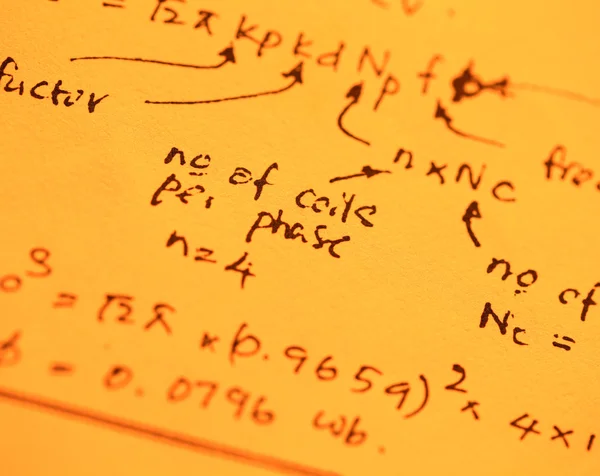 = √2 π kp kd Np f
factor
n x Nc
fre
no of coils
per phase
n = 4
no of
Nc =
= √2 π x (0.9659)² x 4 x 1
= 0.0796 wb.